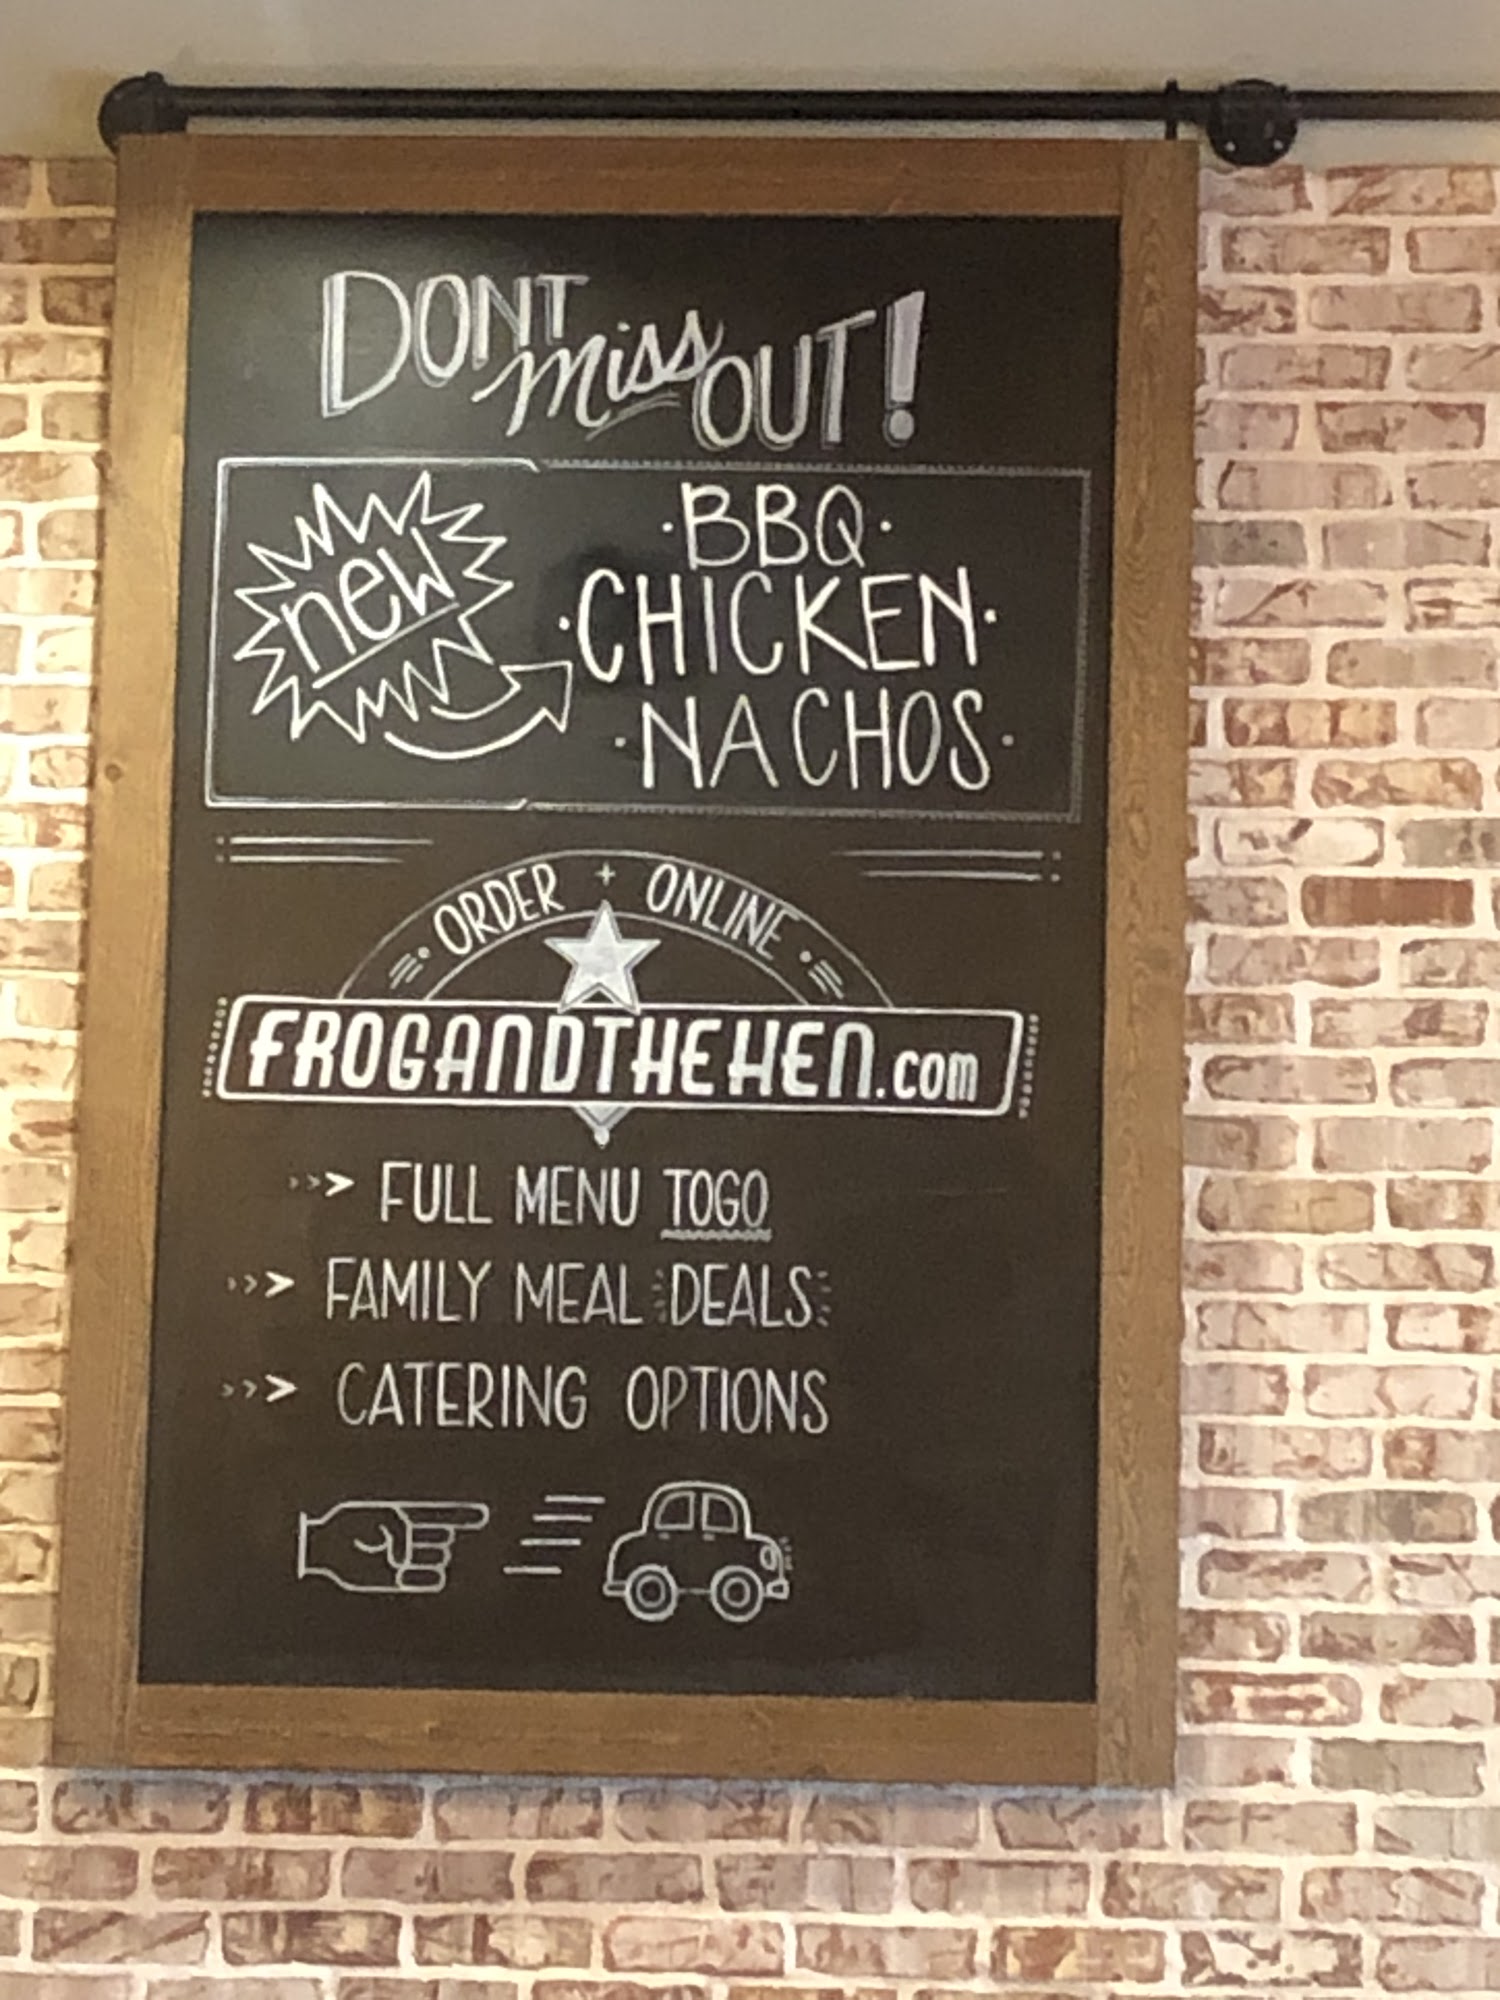 DONT miss OUT!
new
·BBQ·
·CHICKEN·
·NACHOS·
ORDER + ONLINE
FROGANDTHEHEN.com
>>> FULL MENU TOGO
>>> FAMILY MEAL DEALS
>>> CATERING OPTIONS